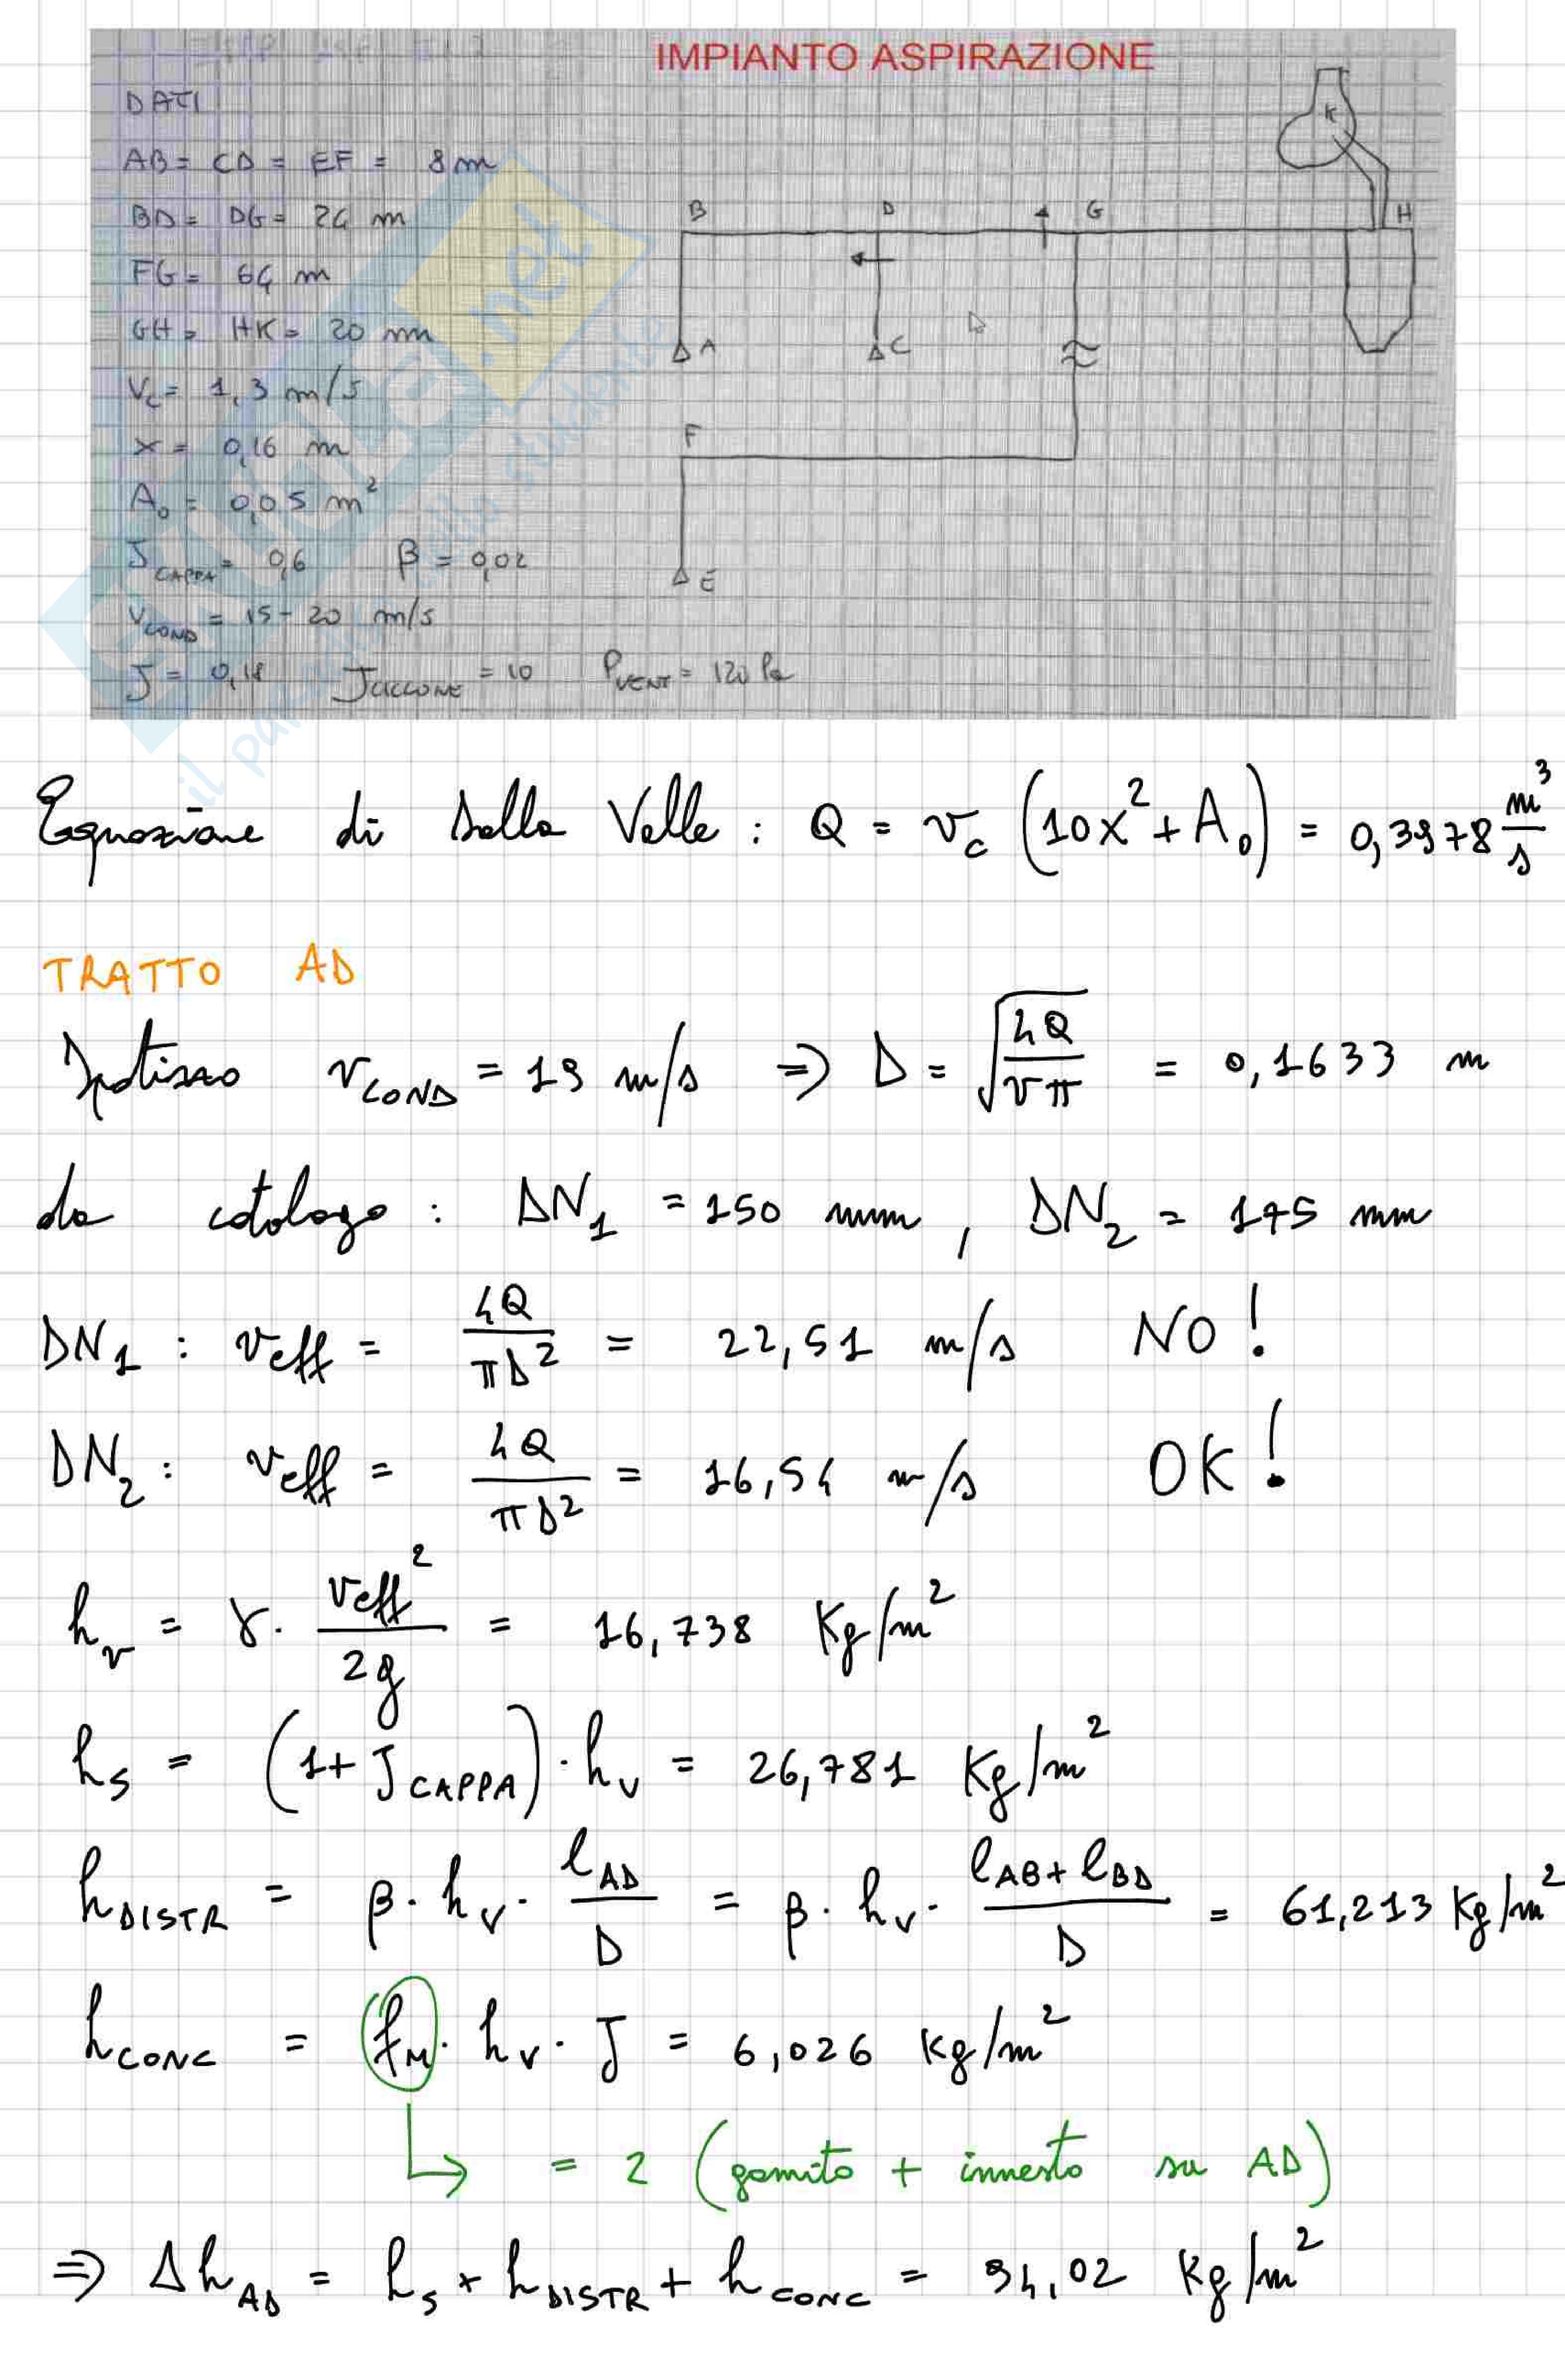 IMPIANTO ASPIRAZIONE
DATI
AB = CD = EF = 8 m
BD = DG = 24 m
FG = 64 m
GH = HK = 20 m
Vc = 1,3 m/s
x = 0,16 m
A₀ = 0,05 m²
J CAPPA = 0,6 β = 0,02
V COND = 15 - 20 m/s
J = 0,18 J CICLONE = 10 P VENT = 120 Pa
K
B D G H
A C
F
E
Equazione di Dalla Valle : Q = v_c (10x² + A₀) = 0,3978 m³/s
TRATTO AD
Ipotizzo v_COND = 19 m/s ⇒ D = √(4Q/(vπ)) = 0,1633 m
da catalogo : DN₁ = 150 mm , DN₂ = 175 mm
DN₁ : veff = 4Q/(πD²) = 22,51 m/s NO!
DN₂ : veff = 4Q/(πD²) = 16,54 m/s OK!
h_v = γ · veff²/2g = 16,738 Kg/m²
h_s = (1 + J_CAPPA) · h_v = 26,781 Kg/m²
h_DISTR = β · h_v · l_AD/D = β · h_v · (l_AB + l_BD)/D = 61,213 Kg/m²
h_CONC = f_M · h_v · J = 6,026 Kg/m²
↳ = 2 (gomito + innesto su AD)
⇒ Δh_AD = h_s + h_DISTR + h_CONC = 94,02 Kg/m²
il paradiso dello studente
.net